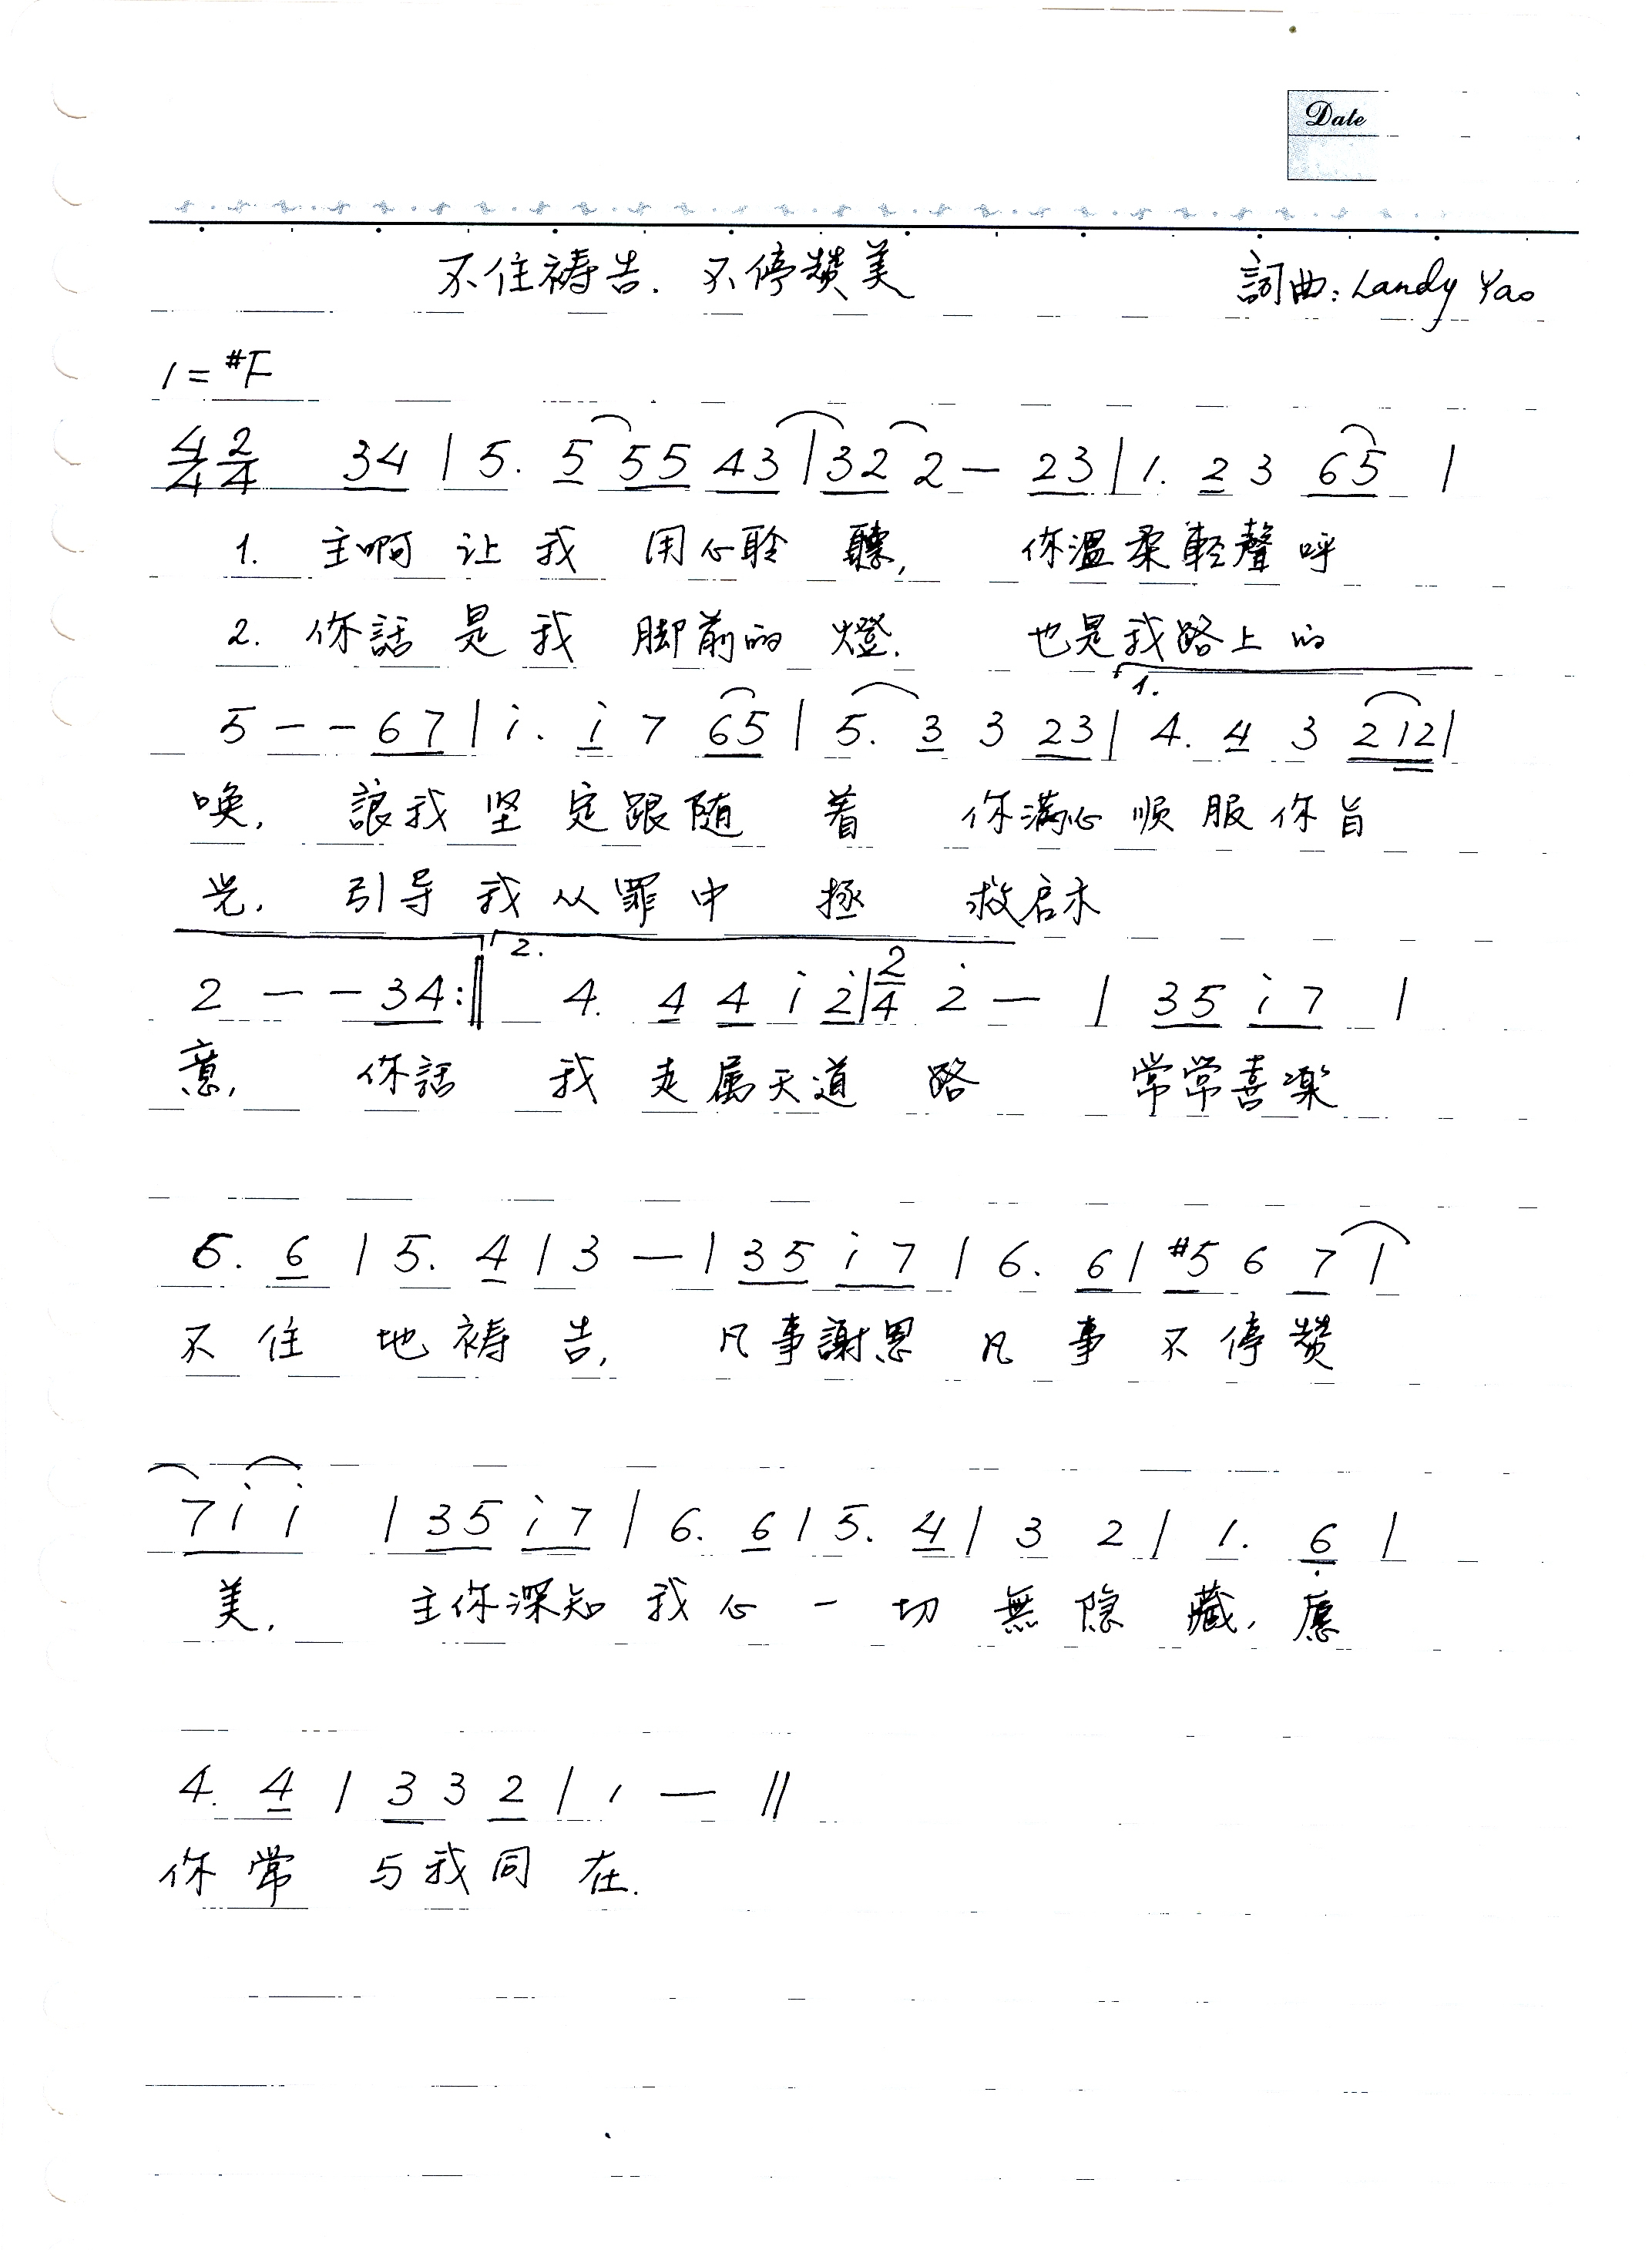 Date
不住祷告. 不停赞美 詞曲: Landy Yao
1=#F
4/4 2/4 34 | 5. 5 55 43 | 32 2 — 23 | 1. 2 3 65 |
1. 主啊 让 我 用心聆 聽, 你溫柔輕聲呼
2. 你話 是 我 脚前的 燈. 也是我路上的
1.
5 - - 67 | i. i 7 65 | 5. 3 3 23 | 4. 4 3 212 |
唤, 讓我 坚 定跟随 着 你满心 顺 服 你旨
光, 引导 我 从罪中 拯 救启示
2.
2 — - 34 :‖ 4. 4 4 i 2̇ | 2/4 2̇ — | 35 i7 |
意, 你話 我 走属天道 路 常常喜楽
6. 6 | 5. 4 | 3 — | 35 i7 | 6. 6 | #5 6 7 |
不 住 地 祷 告, 凡事謝恩 凡 事 不 停 赞
7i i | 35 i7 | 6. 6 | 5. 4 | 3 2 | 1. 6̣ |
美, 主你深知 我 心 一 切 無 隐 藏, 愿
4. 4 | 3 3 2 | 1 — ‖
你 常 与我同 在.